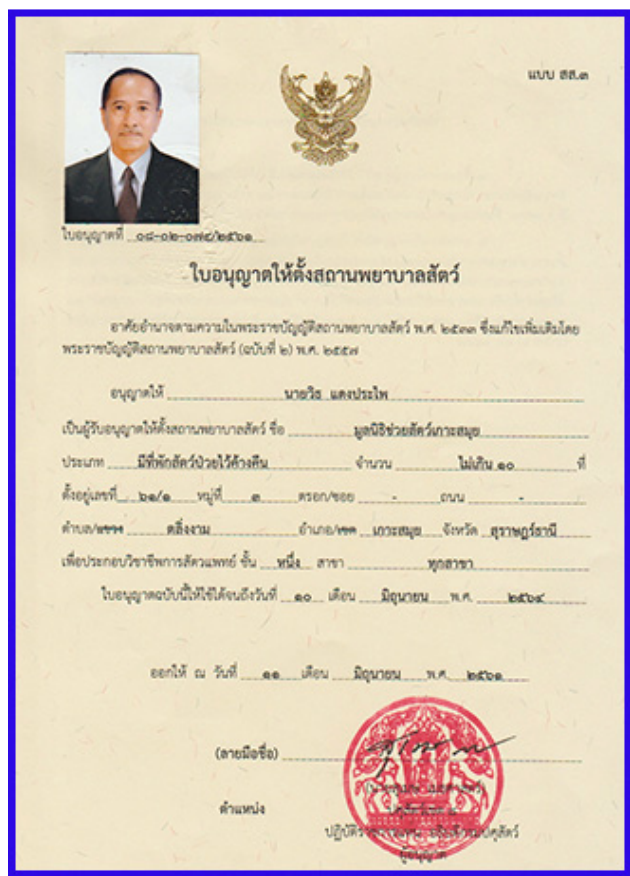 แบบ สส.๓
ใบอนุญาตที่ ๐๘-๐๒-๐๗๔/๒๕๖๑
ใบอนุญาตให้ตั้งสถานพยาบาลสัตว์
อาศัยอำนาจตามความในพระราชบัญญัติสถานพยาบาลสัตว์ พ.ศ. ๒๕๓๓ ซึ่งแก้ไขเพิ่มเติมโดย
พระราชบัญญัติสถานพยาบาลสัตว์ (ฉบับที่ ๒) พ.ศ. ๒๕๕๗
อนุญาตให้ นายวิธ แดงประไพ
เป็นผู้รับอนุญาตให้ตั้งสถานพยาบาลสัตว์ ชื่อ มูลนิธิช่วยสัตว์เกาะสมุย
ประเภท มีที่พักสัตว์ป่วยไว้ค้างคืน จำนวน ไม่เกิน ๑๐ ที่
ตั้งอยู่เลขที่ ๖๑/๑ หมู่ที่ ๓ ตรอก/ซอย - ถนน -
ตำบล/แขวง ตลิ่งงาม อำเภอ/เขต เกาะสมุย จังหวัด สุราษฎร์ธานี
เพื่อประกอบวิชาชีพการสัตวแพทย์ ชั้น หนึ่ง สาขา ทุกสาขา
ใบอนุญาตฉบับนี้ให้ใช้ได้จนถึงวันที่ ๑๐ เดือน มิถุนายน พ.ศ. ๒๕๖๔
ออกให้ ณ วันที่ ๑๑ เดือน มิถุนายน พ.ศ. ๒๕๖๑
(ลายมือชื่อ)
ตำแหน่ง
ผู้อนุญาต